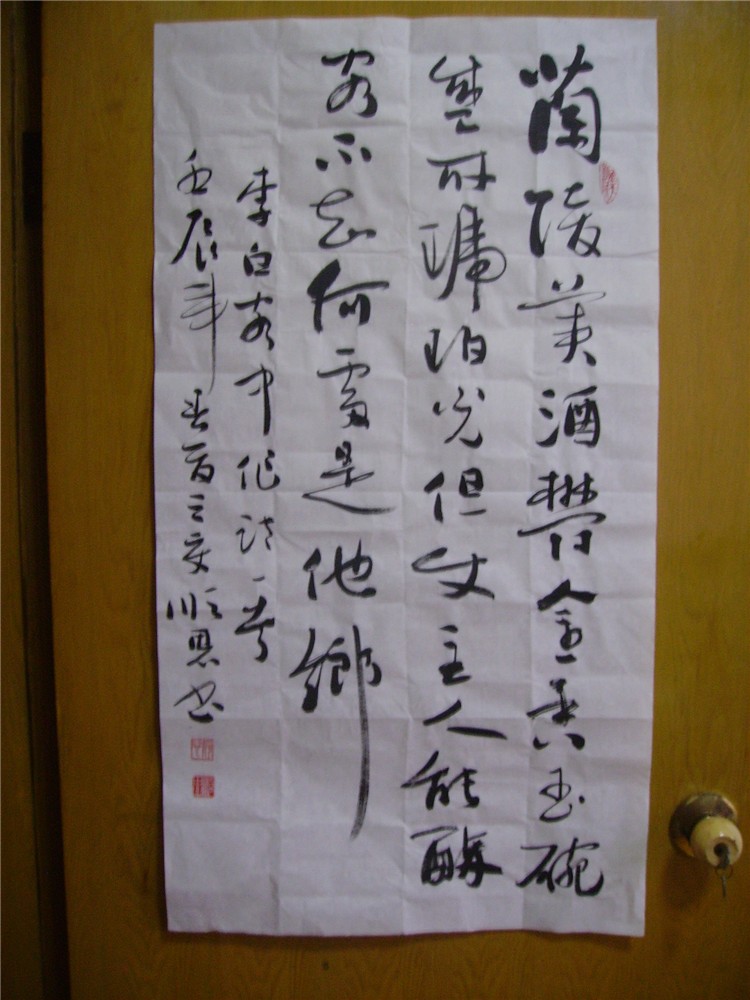 蘭陵美酒鬱金香玉碗
盛来琥珀光但使主人能醉
客不知何處是他鄉
李白客中作詩一首
壬辰年春之顺恩书